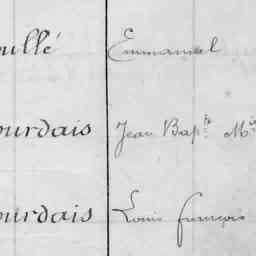 ouillé Emmanuel
ourdais Jean Bap.te M
ourdais Louis françois